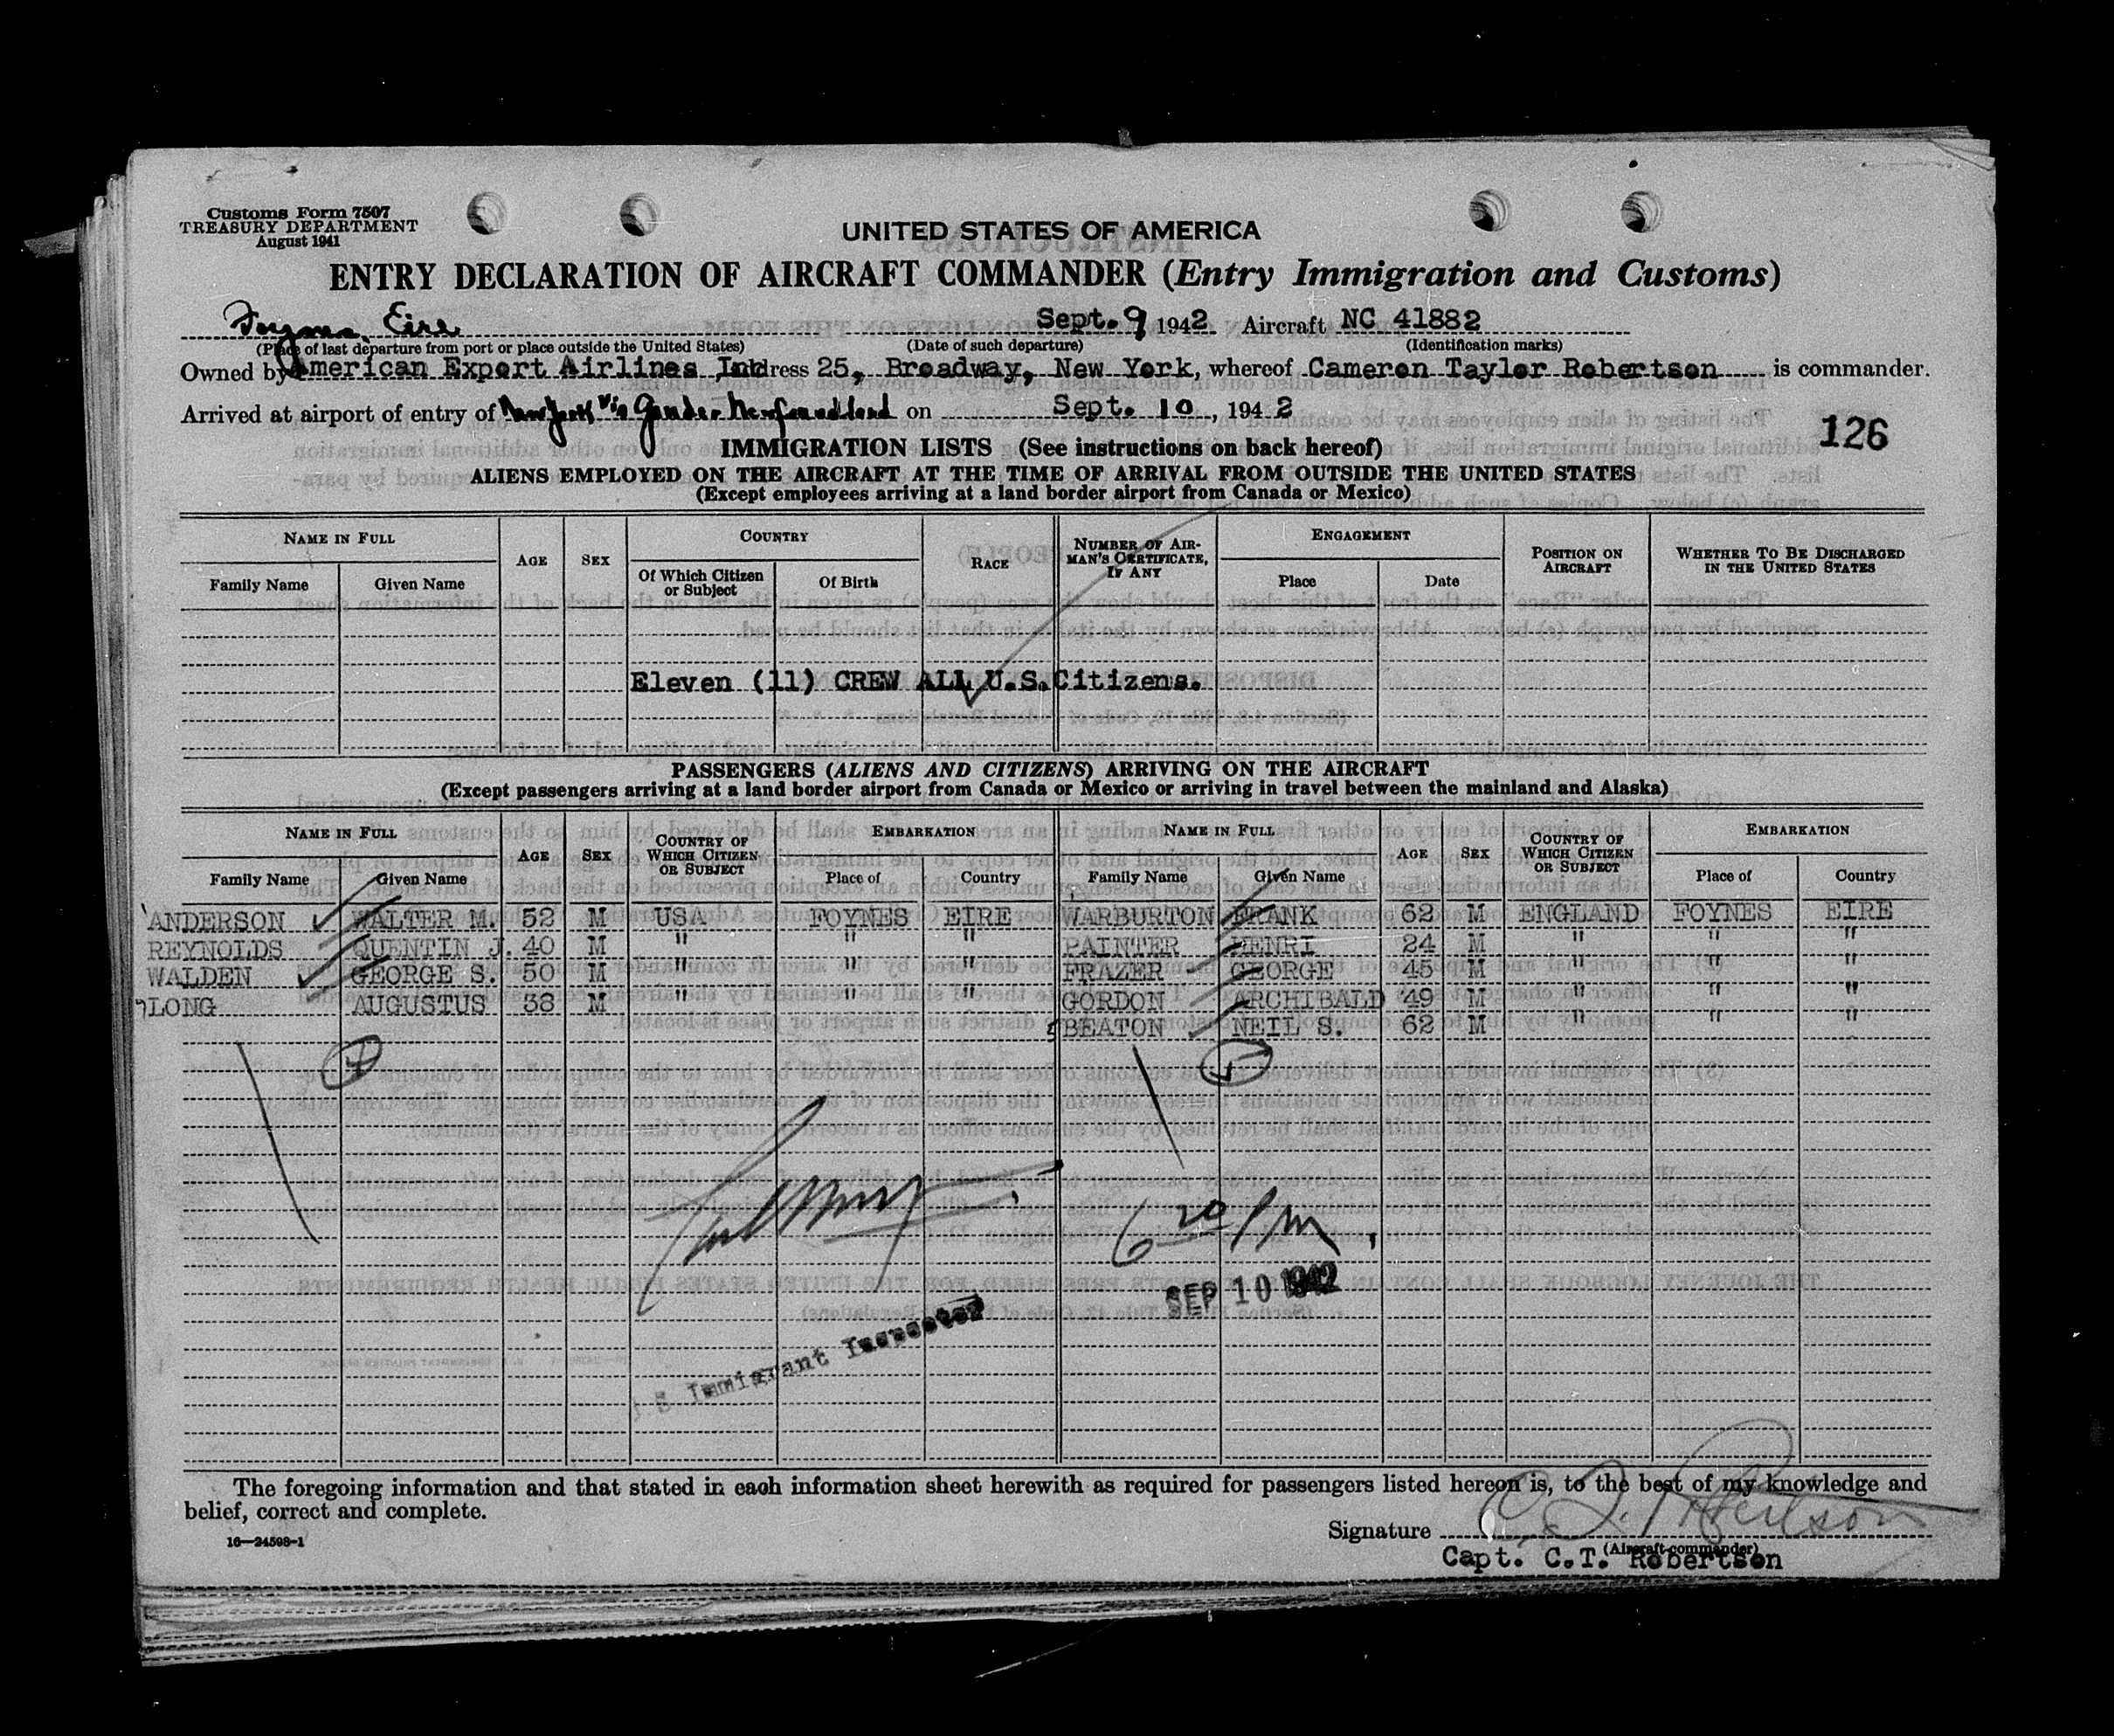 Customs Form 7507
TREASURY DEPARTMENT
August 1941
UNITED STATES OF AMERICA
ENTRY DECLARATION OF AIRCRAFT COMMANDER (Entry Immigration and Customs)
Foynes, Eire Sept. 9 1942 Aircraft NC 41882
(Place of last departure from port or place outside the United States) (Date of such departure) (Identification marks)
Owned by American Export Airlines Inc Address 25, Broadway, New York, whereof Cameron Taylor Robertson is commander.
Arrived at airport of entry of New York via Gander Newfoundland on Sept. 10, 1942
126
IMMIGRATION LISTS (See instructions on back hereof)
ALIENS EMPLOYED ON THE AIRCRAFT AT THE TIME OF ARRIVAL FROM OUTSIDE THE UNITED STATES
(Except employees arriving at a land border airport from Canada or Mexico)
NAME IN FULL AGE SEX COUNTRY RACE NUMBER OF AIRMAN'S CERTIFICATE, IF ANY ENGAGEMENT POSITION ON AIRCRAFT WHETHER TO BE DISCHARGED IN THE UNITED STATES
Family Name Given Name Of Which Citizen or Subject Of Birth Place Date
Eleven (11) CREW ALL U.S.Citizens.
PASSENGERS (ALIENS AND CITIZENS) ARRIVING ON THE AIRCRAFT
(Except passengers arriving at a land border airport from Canada or Mexico or arriving in travel between the mainland and Alaska)
NAME IN FULL AGE SEX COUNTRY OF WHICH CITIZEN OR SUBJECT EMBARKATION NAME IN FULL AGE SEX COUNTRY OF WHICH CITIZEN OR SUBJECT EMBARKATION
Family Name Given Name Place of Country Family Name Given Name Place of Country
ANDERSON WALTER M. 52 M USA FOYNES EIRE WARBURTON FRANK 62 M ENGLAND FOYNES EIRE
REYNOLDS QUENTIN J. 40 M " " " PAINTER HENRI 24 M " " "
WALDEN GEORGE S. 50 M " " " FRAZER GEORGE 45 M " " "
LONG AUGUSTUS 38 M " " " GORDON ARCHIBALD 49 M " " "
BEATON NEIL S. 62 M " " "
6 20 PM
SEP 10 1942
U.S. Immigrant Inspector
The foregoing information and that stated in each information sheet herewith as required for passengers listed hereon is, to the best of my knowledge and
belief, correct and complete.
Signature C. T. Robertson
(Aircraft commander)
16—24598-1
Capt. C.T. Robertson